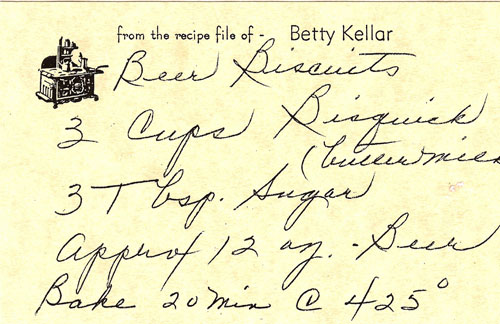 from the recipe file of - Betty Kellar
Beer Biscuits
3 Cups Bisquick
(buttermilk
3 Tbsp. Sugar
Approx 12 oz. - Beer
Bake 20 min @ 425°